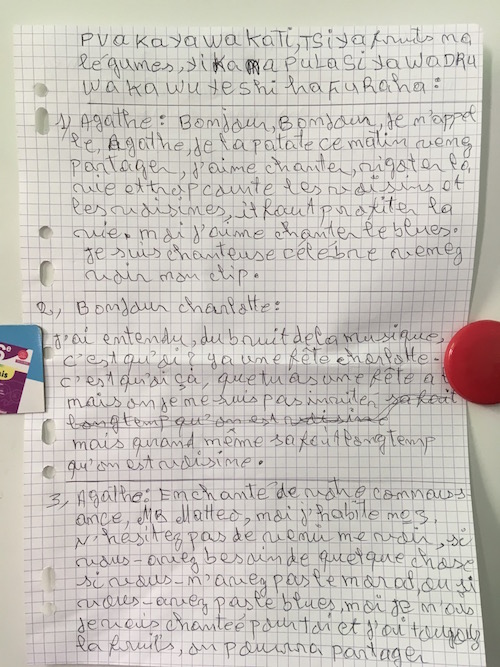 PVAKAYAWAKATI, TSIYA fruits na
légumes, YIKANA PULASIYAWADRU
WAKAWUYESHIHAFURAHA:
1) Agathe: Bonjour, Bonjour, je m'appel
le, Agathe, je la patate ce matin venez
partager, j'aime chanter, rigoter la
vie et trop cainte les voisins et
les voisines, it faut profiter la
vie. moi j'aime chanter le blues.
je suis chanteuse célébre venez
voir mon clip.
2, Bonjour charlotte:
j'ai entendu, du bruit de la musique,
c'est qu'oi? ya une fête charlotte.
c'est qu'oi ça, que tu as une fête a
mais on je me suis pas inviter sa fait
longtemp qu'on est voisine
mais quand même sa fait longtemp
qu'on est voisine.
3, Agathe: Enchanté de votre connaiss-
ance, Mr Matteo, moi j'habite no 3,
N'hésitez pas de venir me voir, si
vous-avez besoin de quelque chose
si vous-n'avez pas le moral, ou si
vous-avez pas le blues, moi je
je vous chantée pour toi et j'ai toujours
la fruits, on pourra partager